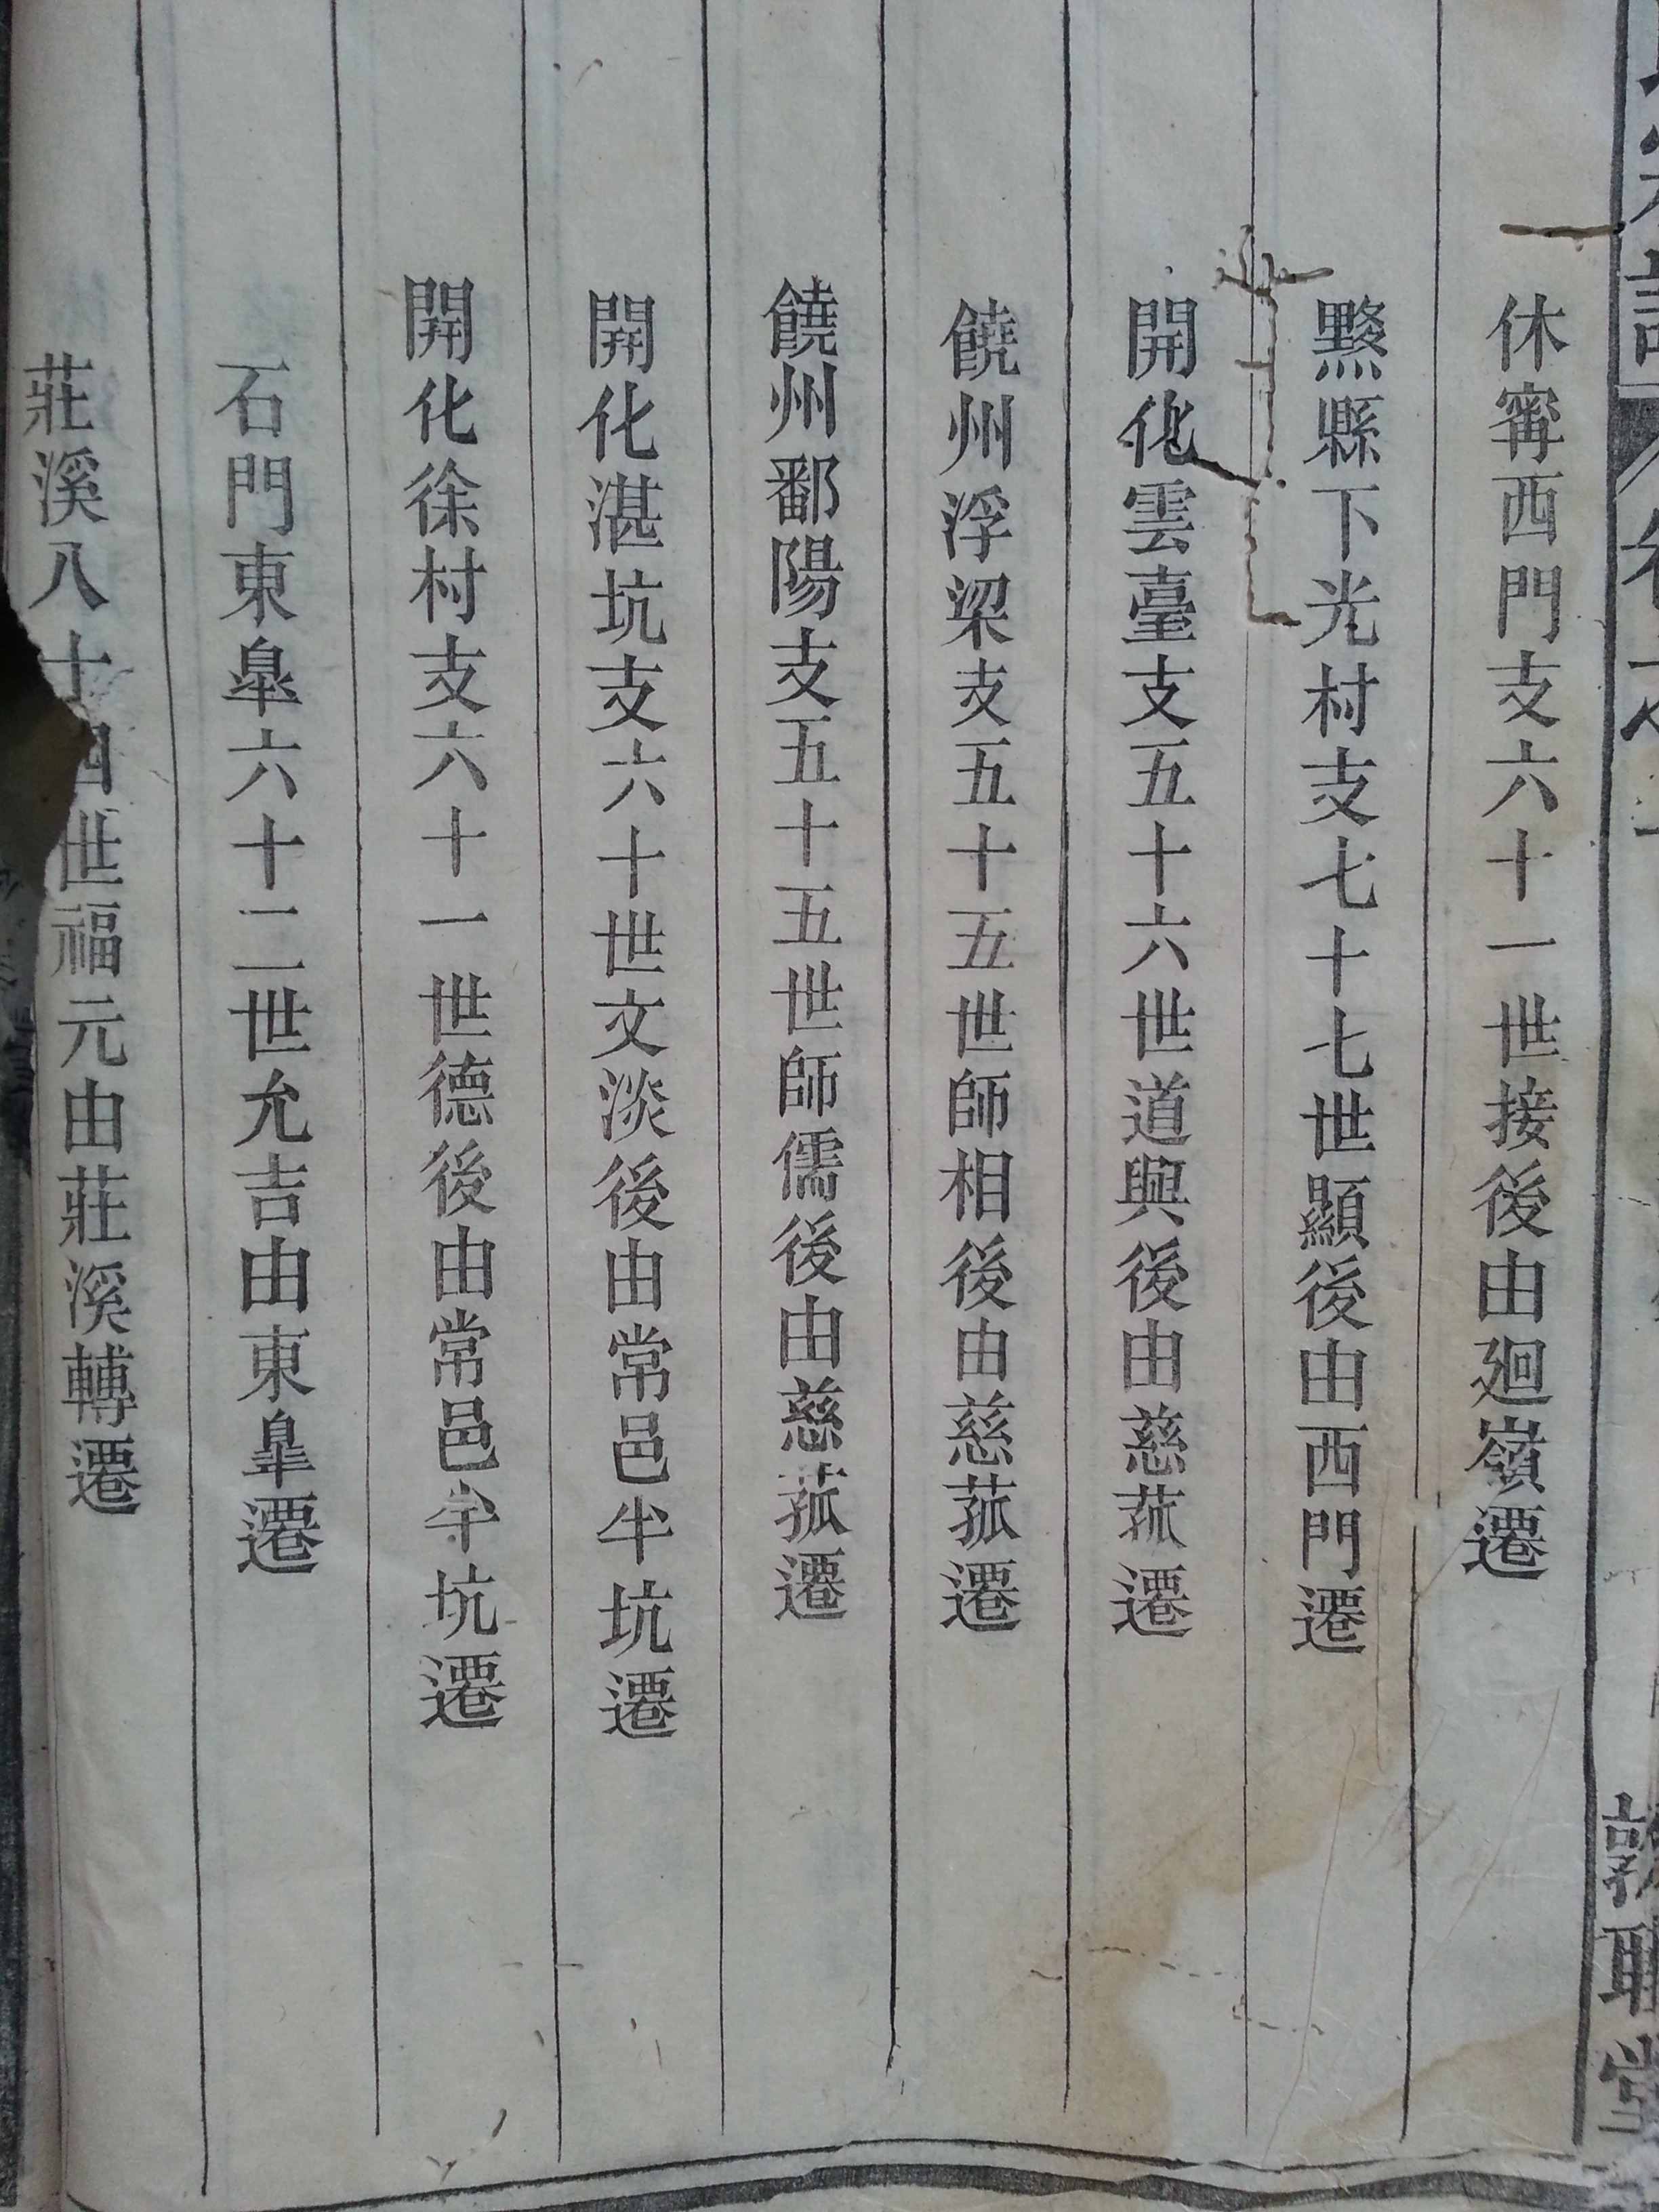 休甯西門支六十一世接後由廻嶺遷
黟縣下光村支七十七世顯後由西門遷
開化雲臺支五十六世道興後由慈菰遷
饒州浮梁支五十五世師相後由慈菰遷
饒州鄱陽支五十五世師儒後由慈菰遷
開化湛坑支六十世文淡後由常邑半坑遷
開化徐村支六十一世德後由常邑半坑遷
石門東臯六十二世允吉由東臯遷
莊溪八十四世福元由莊溪轉遷